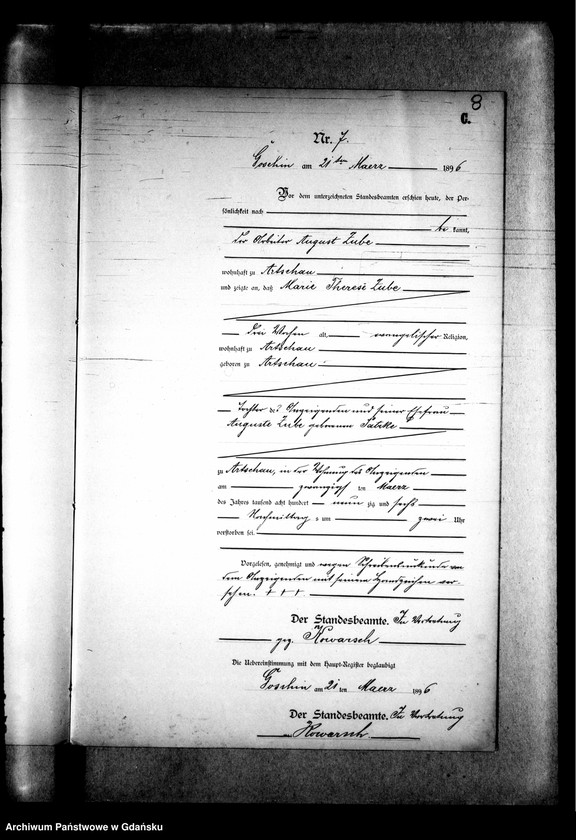 8
C.
Nr. 7.
Goschin am 21ten Maerz 1896
Vor dem unterzeichneten Standesbeamten erschien heute, der Per-
sönlichkeit nach
be kannt,
der Arbeiter August Zube
wohnhaft zu Artschau
und zeigte an, daß Marie Therese Zube
drei Wochen alt, evangelischer Religion,
wohnhaft zu Artschau
geboren zu Artschau
Tochter des Anzeigenden und seiner Ehefrau
Auguste Zube geborenen
zu Artschau, in der Wohnung des Anzeigenden
am zwanzigs ten Maerz
des Jahres tausend acht hundert neun zig und sechs
Nachmittag s um zwei Uhr
verstorben sei.
Vorgelesen, genehmigt und wegen Schreibensunkunde von
dem Anzeigenden mit seinem Handzeichen ver-
sehen. + + +
Der Standesbeamte. In Vertretung
gez. Kowarsch
Die Uebereinstimmung mit dem Haupt-Register beglaubigt
Goschin am 21 ten Maerz 1896
Der Standesbeamte. In Vertretung
Kowarsch.
Archiwum Państwowe w Gdańsku